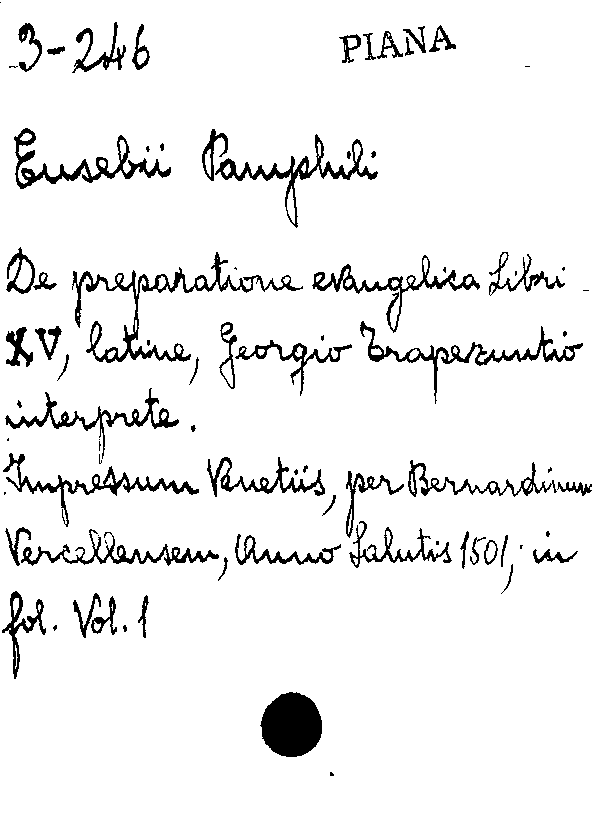 3-246 PIANA
Eusebii Pamphili
De preparatione evangelica Libri
XV, latine, Georgio Trapezuntio
interprete.
Impressum Venetiis, per Bernardinum
Vercellensem, Anno Salutis 1501, in
fol. Vol. 1